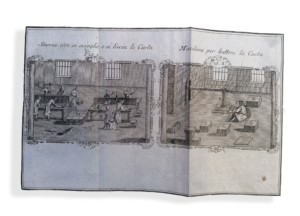 Stanza ove si scieglie, e si liscia la Carta
Macchina per battere la Carta